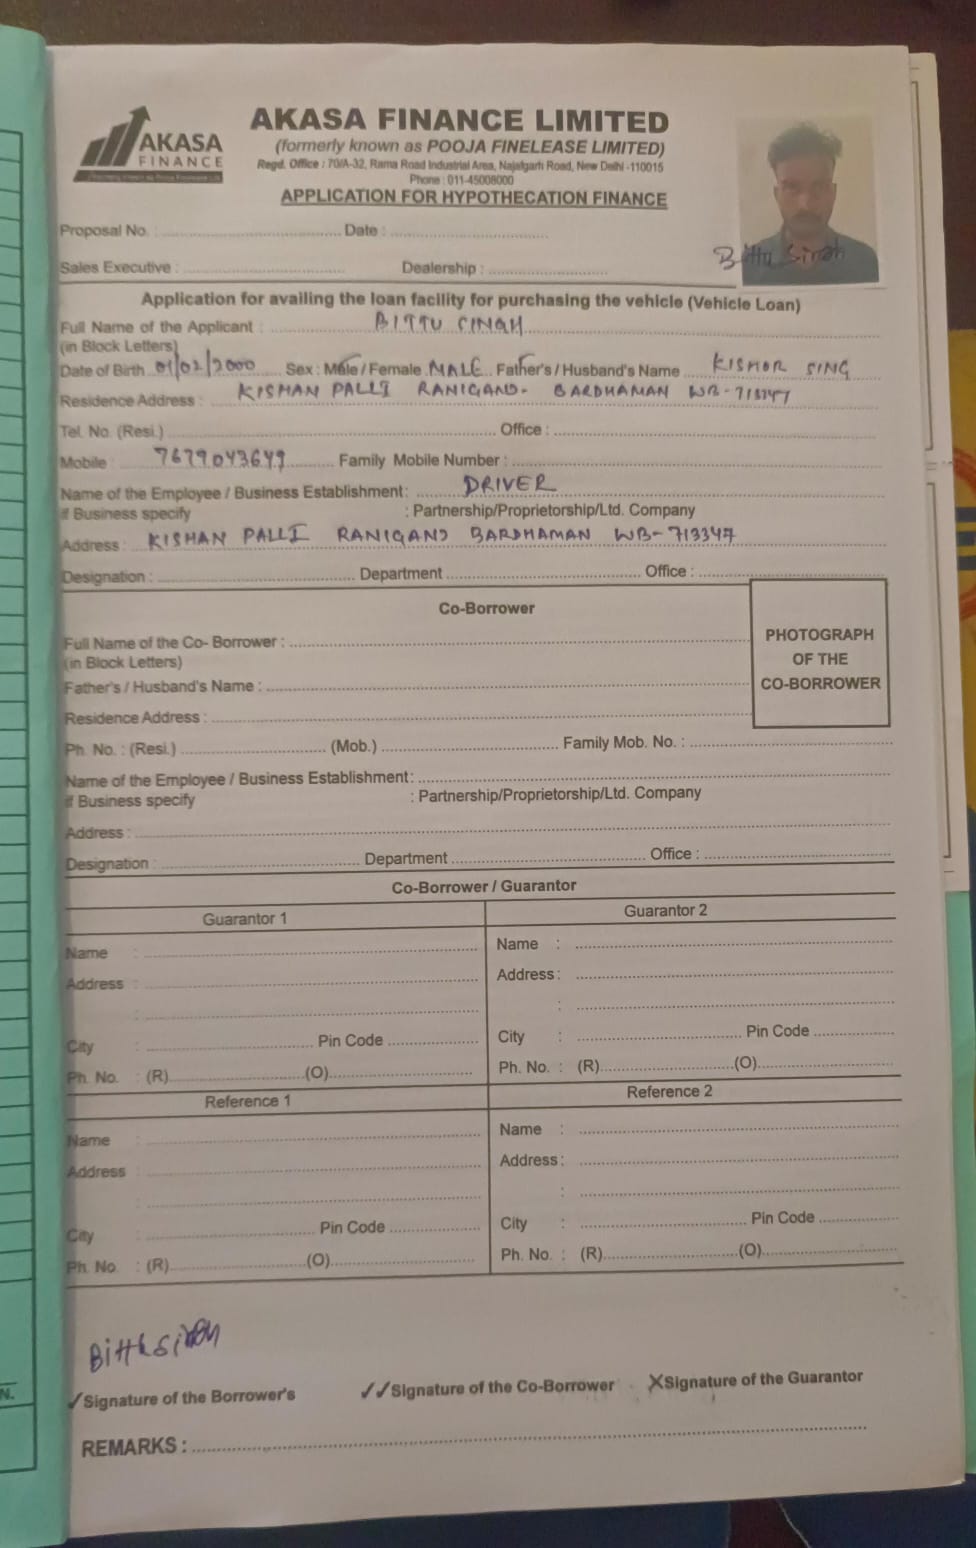 AKASA
FINANCE
AKASA FINANCE LIMITED
(formerly known as POOJA FINELEASE LIMITED)
Regd. Office : 70/A-32, Rama Road Industrial Area, Najafgarh Road, New Delhi -110015
Phone : 011-45008000
APPLICATION FOR HYPOTHECATION FINANCE
Proposal No. : Date :
Bittu Singh
Sales Executive : Dealership :
Application for availing the loan facility for purchasing the vehicle (Vehicle Loan)
Full Name of the Applicant : BITTU SINGH
(in Block Letters)
Date of Birth 01/02/2000 Sex : Male / Female MALE Father's / Husband's Name KISHOR SING
Residence Address : KISHAN PALLI RANIGANJ- BARDHAMAN WB-713347
Tel. No. (Resi.) Office :
Mobile : 7679043649 Family Mobile Number :
Name of the Employee / Business Establishment: DRIVER
if Business specify : Partnership/Proprietorship/Ltd. Company
Address : KISHAN PALLI RANIGANJ BARDHAMAN WB-713347
Designation : Department Office :
Co-Borrower
Full Name of the Co- Borrower :
(in Block Letters)
Father's / Husband's Name :
Residence Address :
PHOTOGRAPH
OF THE
CO-BORROWER
Ph. No. : (Resi.) (Mob.) Family Mob. No. :
Name of the Employee / Business Establishment:
if Business specify : Partnership/Proprietorship/Ltd. Company
Address :
Designation : Department Office :
Co-Borrower / Guarantor
Guarantor 1 Guarantor 2
Name : Name :
Address : Address :
: :
City : Pin Code City : Pin Code
Ph. No. : (R) (O) Ph. No. : (R) (O)
Reference 1 Reference 2
Name : Name :
Address : Address :
: :
City : Pin Code City : Pin Code
Ph. No. : (R) (O) Ph. No. : (R) (O)
Bittu Singh
✓Signature of the Borrower's ✓✓Signature of the Co-Borrower XSignature of the Guarantor
REMARKS :
N.